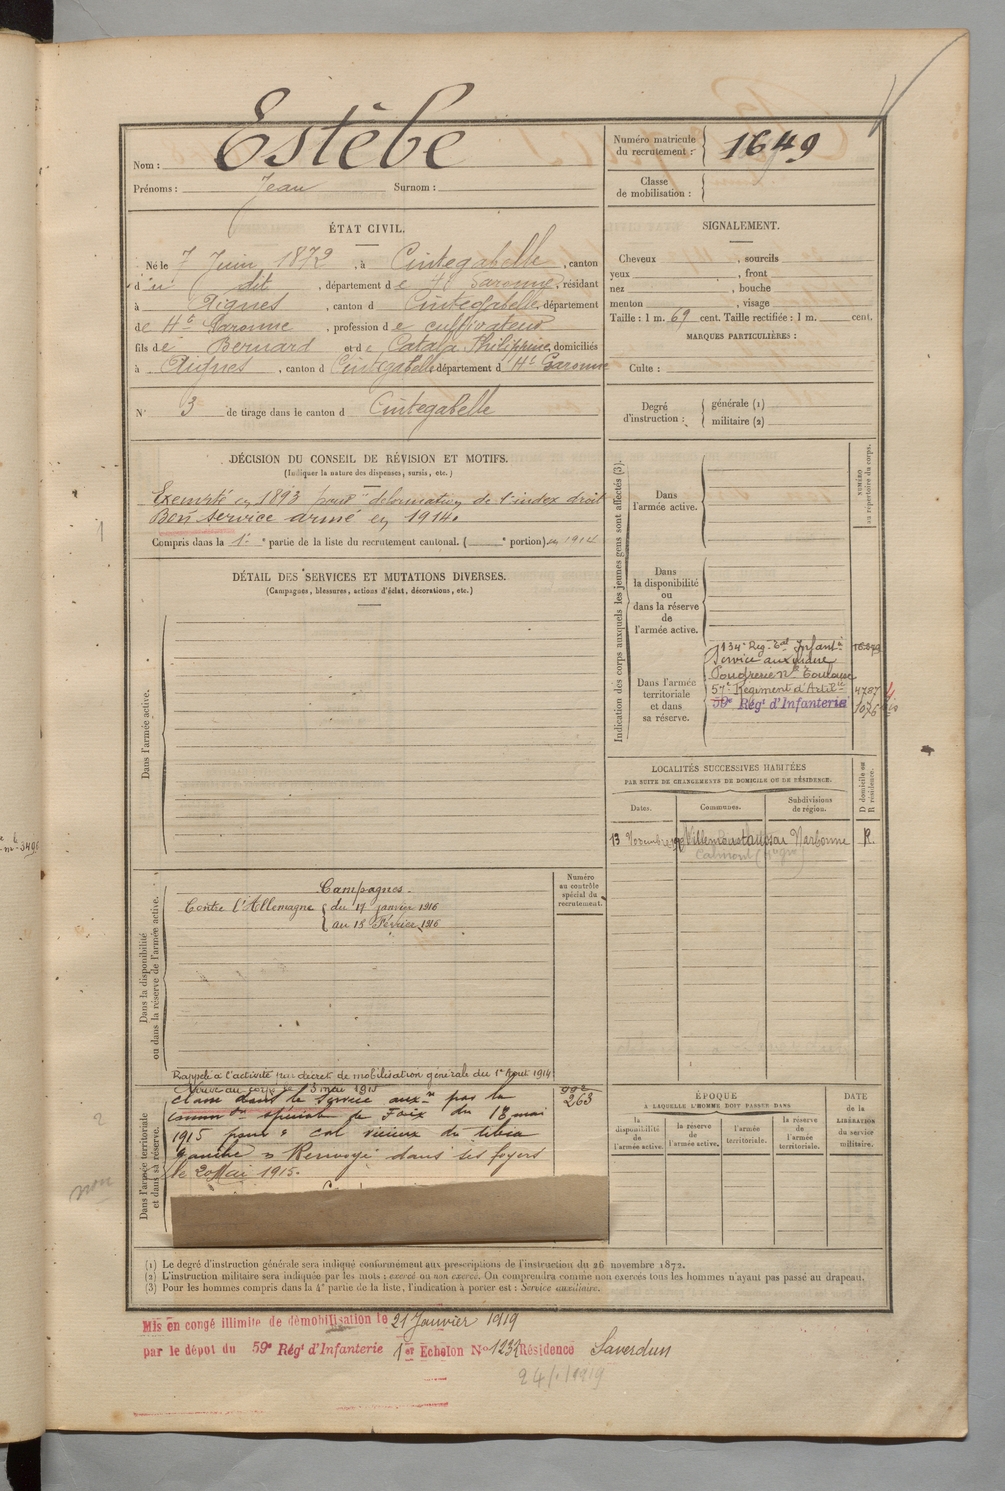 Estèbe
Nom :
Prénoms : Jean Surnom :
Numéro matricule du recrutement : 1649
Classe de mobilisation :
ÉTAT CIVIL.
Né le 7 Juin 1872, à Cintegabelle, canton
du dit, département de Hte Garonne, résidant
à Aignes, canton d Cintegabelle, département
de Hte Garonne, profession de cultivateur
fils de Bernard et de Catala Philippine, domiciliés
à Aignes, canton d Cintegabelle, département d Hte Garonne
N° 3 de tirage dans le canton d Cintegabelle
SIGNALEMENT.
Cheveux , sourcils
yeux , front
nez , bouche
menton , visage
Taille : 1 m. 69 cent. Taille rectifiée : 1 m. cent.
MARQUES PARTICULIÈRES :
Culte :
Degré d'instruction : générale (1)
militaire (2)
DÉCISION DU CONSEIL DE RÉVISION ET MOTIFS.
(Indiquer la nature des dispenses, sursis, etc.)
Exempté en 1893 pour "déformation de l'index droit
Bon service armé en 1914.
Compris dans la 1e partie de la liste du recrutement cantonal. ( e portion) en 1914
DÉTAIL DES SERVICES ET MUTATIONS DIVERSES.
(Campagnes, blessures, actions d'éclat, décorations, etc.)
Dans l'armée active.
Dans la disponibilité
ou dans la réserve de l'armée active.
Campagnes.
Contre l'Allemagne du 17 janvier 1916
au 15 Février 1916
Numéro
au contrôle
spécial du
recrutement.
Rappelé à l'activité par décret de mobilisation générale du 1er Août 1914
Arrivé au corps le 3 mai 1915
classé dans le service auxre par la
common spéciale de Foix du 18 mai
1915 pour "cal vicieux du tibia
gauche" Renvoyé dans ses foyers
le 20 Mai 1915.
263
Dans l'armée territoriale
et dans sa réserve.
Indication des corps auxquels les jeunes gens sont affectés (3).
NUMÉRO
au répertoire du corps.
Dans
l'armée active.
Dans
la disponibilité
ou
dans la réserve
de
l'armée active.
Dans l'armée
territoriale
et dans
sa réserve.
134e Reg. Eal Infantie
Service auxiliaire
Poudrerie Nle Toulouse
57e Régiment d'Artilie 4787
59e Régt d'Infanterie
LOCALITÉS SUCCESSIVES HABITÉES
PAR SUITE DE CHANGEMENTS DE DOMICILE OU DE RÉSIDENCE.
Dates. Communes. Subdivisions de région. D domicile ou R résidence.
13 Novembre Villemoustaussou Narbonne R.
Calmont
ÉPOQUE
À LAQUELLE L'HOMME DOIT PASSER DANS
la disponibilité de l'armée active.
la réserve de l'armée active.
l'armée territoriale.
la réserve de l'armée territoriale.
DATE de la LIBÉRATION du service militaire.
non
(1) Le degré d'instruction générale sera indiqué conformément aux prescriptions de l'instruction du 26 novembre 1872.
(2) L'instruction militaire sera indiquée par les mots : exercé ou non exercé. On comprendra comme non exercés tous les hommes n'ayant pas passé au drapeau.
(3) Pour les hommes compris dans la 4e partie de la liste, l'indication à porter est : Service auxiliaire.
Mis en congé illimité de démobilisation le 21 Janvier 1919
par le dépôt du 59e Régt d'Infanterie 1er Echelon N° 1232 Résidence Saverdun
24/1/1919